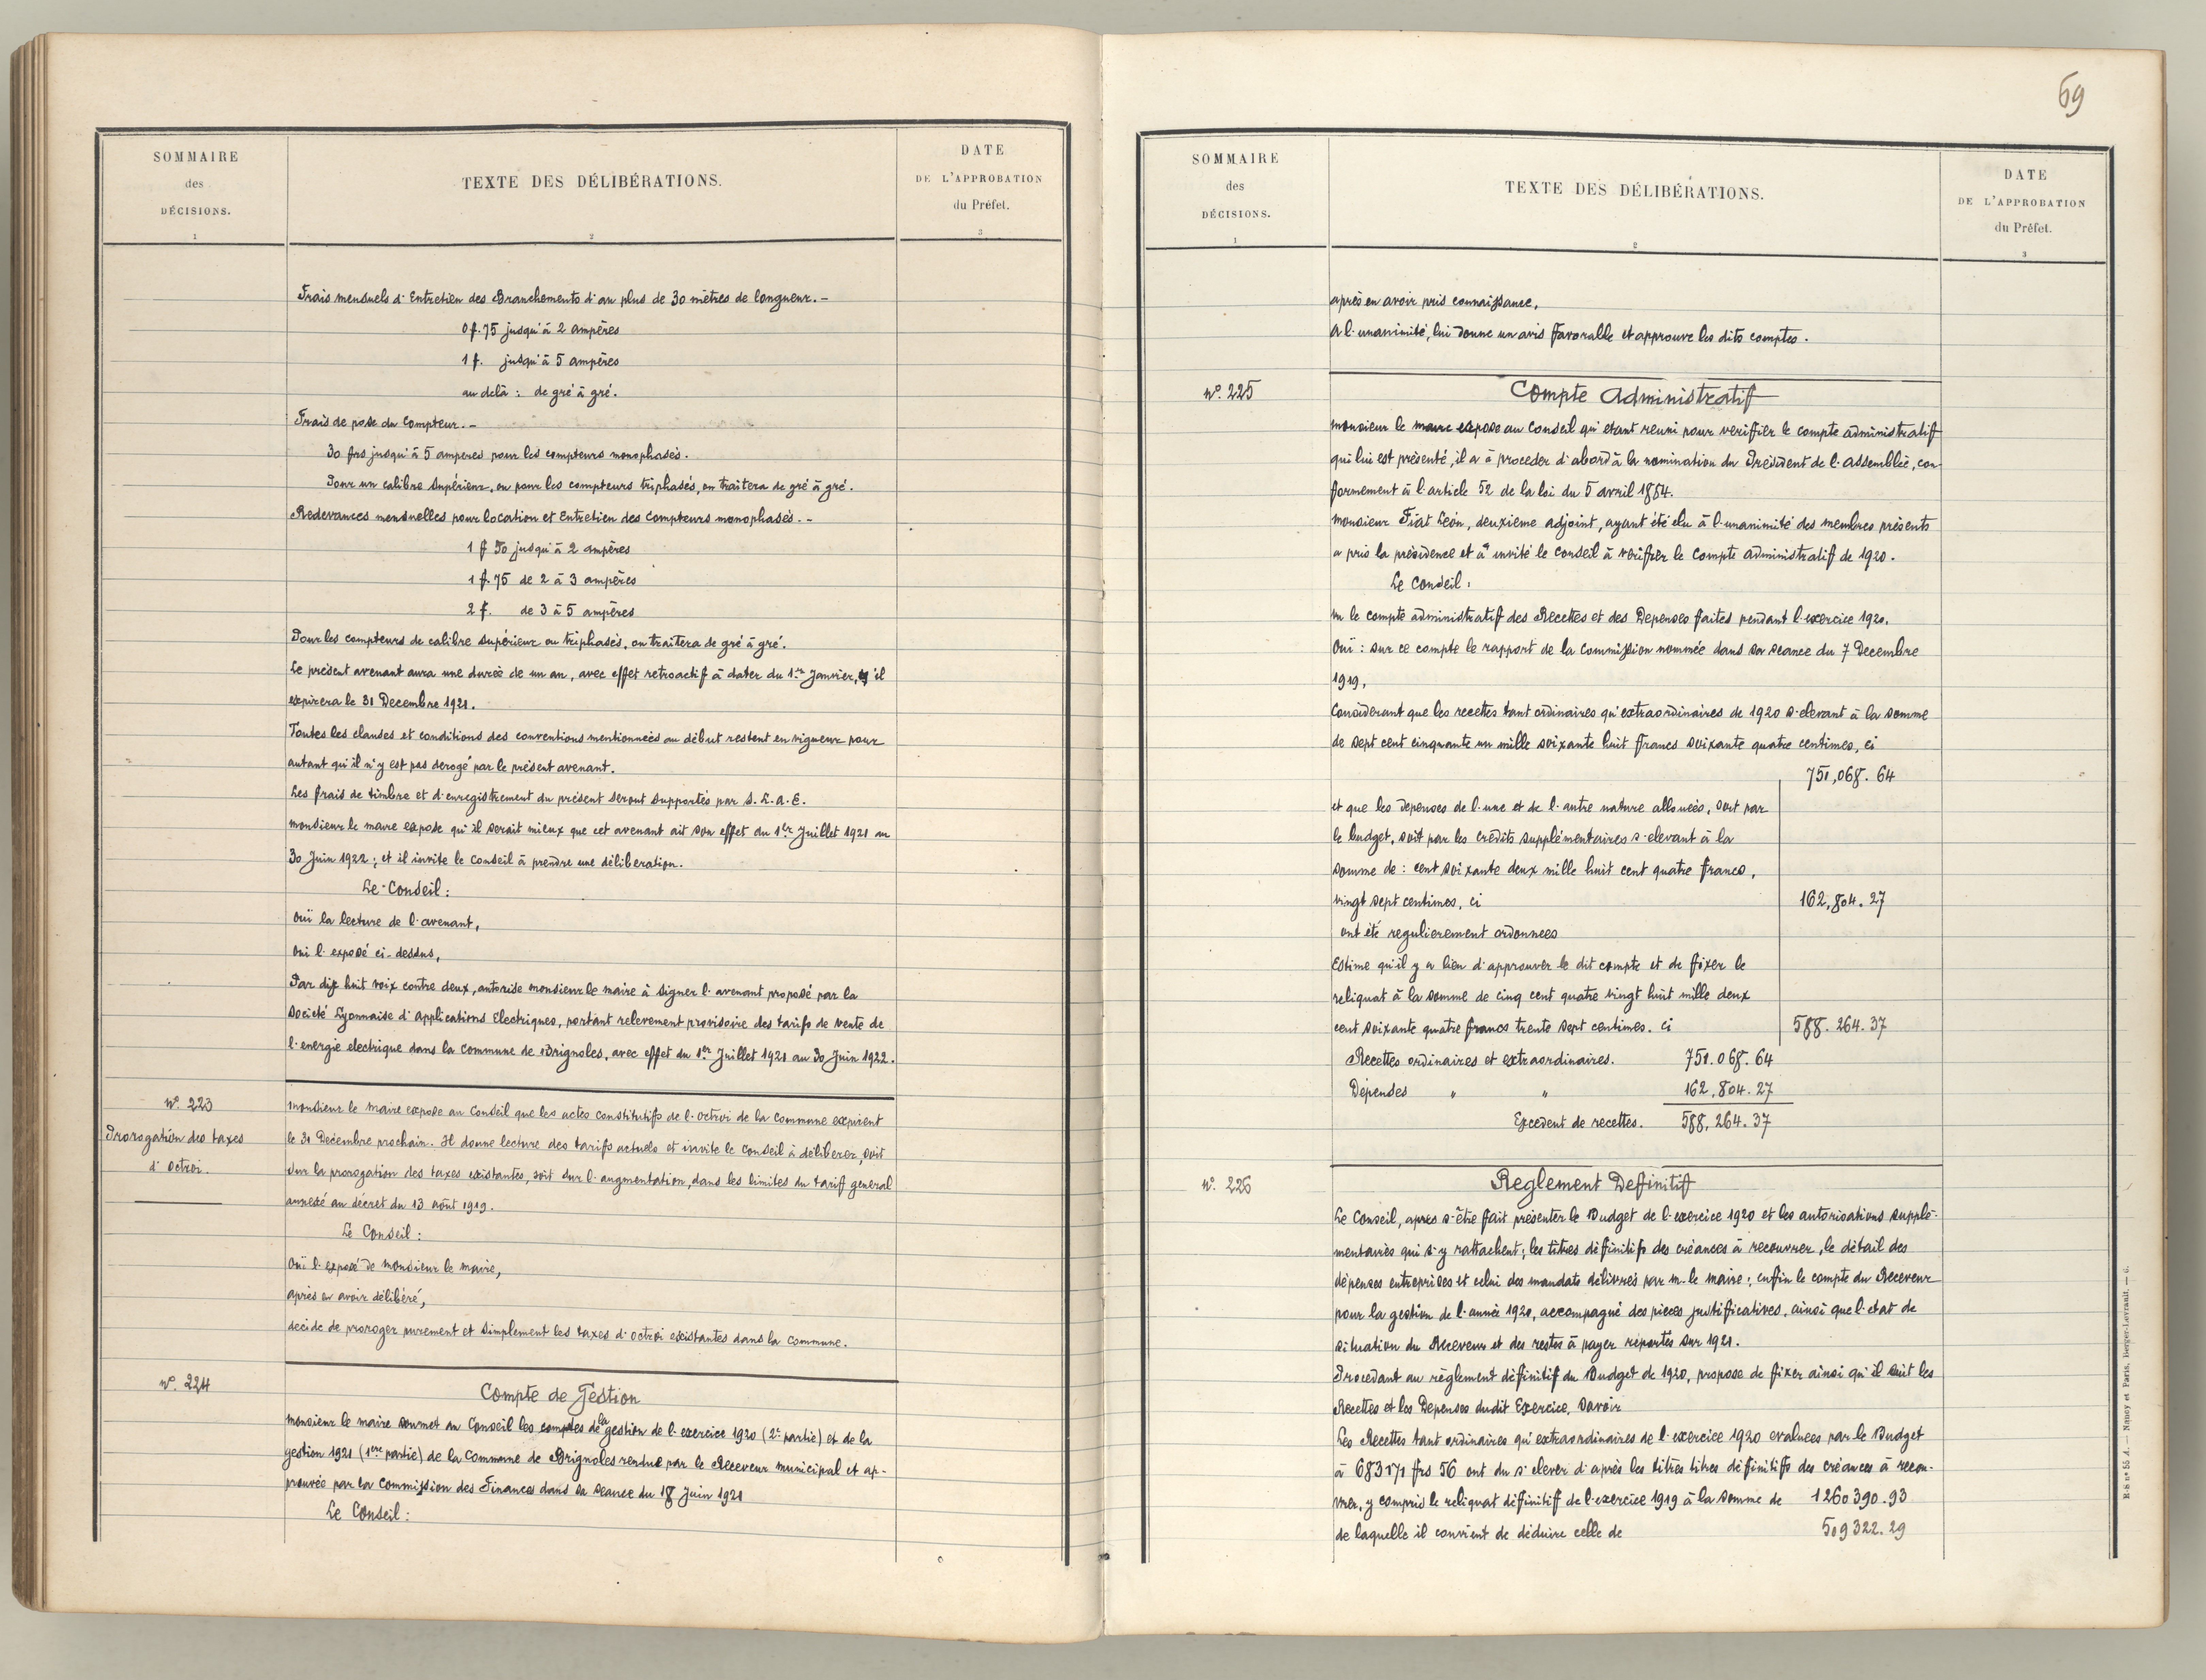 SOMMAIRE
des
DÉCISIONS.
1
TEXTE DES DÉLIBÉRATIONS.
2
DATE
DE L'APPROBATION
du Préfet.
3
Frais mensuels d'Entretien des Branchements d'au plus de 30 mètres de longueur. -
0 f. 75 jusqu'à 2 ampères
1 f. jusqu'à 5 ampères
au delà : de gré à gré.
Frais de pose du Compteur. -
30 frs jusqu'à 5 amperes pour les compteurs monophasés.
Pour un calibre supérieur, ou pour les compteurs triphasés, on traitera de gré à gré.
Redevances mensuelles pour location et Entretien des Compteurs monophasés. -
1 f 50 jusqu'à 2 ampères
1 f. 75 de 2 à 3 ampères
2 f. de 3 à 5 ampères
Pour les compteurs de calibre supérieur ou triphasés, on traitera de gré à gré.
Le présent avenant aura une durée de un an, avec effet retroactif à dater du 1er Janvier, il
expirera le 31 Decembre 1921.
Toutes les clauses et conditions des conventions mentionnées au début restent en vigueur pour
autant qu'il n'y est pas derogé par le présent avenant.
Les frais de timbre et d'enregistrement du présent seront supportés par S. L. A. E.
Monsieur le maire expose qu'il serait mieux que cet avenant ait son effet du 1er Juillet 1921 au
30 Juin 1922 ; et il invite le Conseil à prendre une déliberation.
Le Conseil :
ouï la lecture de l'avenant,
ouï l'exposé ci-dessus,
Par dix huit voix contre deux, autorise monsieur le maire à signer l'avenant proposé par la
Société Lyonnaise d'Applications Electriques, portant relevement provisoire des tarifs de vente de
l'energie electrique dans la commune de Brignoles, avec effet du 1er Juillet 1921 au 30 Juin 1922.
N° 223
Prorogation des taxes
d'octroi.
Monsieur le Maire expose au Conseil que les actes constitutifs de l'octroi de la Commune expirent
le 31 Décembre prochain. Il donne lecture des tarifs actuels et invite le Conseil à déliberer, soit
sur la prorogation des taxes existantes, soit sur l'augmentation, dans les limites du tarif general
annexé au décret du 13 août 1919.
Le Conseil :
ouï l'exposé de Monsieur le maire,
après en avoir délibéré,
decide de proroger purement et simplement les taxes d'octroi existantes dans la Commune.
N° 224
Compte de Gestion
Monsieur le maire soumet au Conseil les comptes de la gestion de l'exercice 1920 (2e partie) et de la
gestion 1921 (1ere partie) de la Commune de Brignoles rendus par le Receveur municipal et ap-
prouvés par la Commission des Finances dans sa seance du 18 Juin 1921
Le Conseil :
69
SOMMAIRE
des
DÉCISIONS.
1
TEXTE DES DÉLIBÉRATIONS.
2
DATE
DE L'APPROBATION
du Préfet.
3
après en avoir pris connaissance,
à l'unanimité, lui donne un avis favorable et approuve les dits comptes.
N° 225
Compte Administratif
monsieur le maire expose au Conseil qu'etant reuni pour veriffier le compte administratif
qui lui est présenté, il a à proceder d'abord à la nomination du Président de l'Assemblée, con
formement à l'article 52 de la loi du 5 avril 1884.
monsieur Fiat Léon, deuxieme adjoint, ayant été élu à l'unanimité des membres présents
a pris la présidence et a invité le conseil à vériffier le Compte administratif de 1920.
Le Conseil :
vu le compte administratif des Recettes et des Depenses faites pendant l'exercice 1920,
Ouï : sur ce compte le rapport de la Commission nommée dans sa seance du 7 Decembre
1919,
Considerant que les recettes tant ordinaires qu'extraordinaires de 1920 s'elevant à la somme
de sept cent cinquante un mille soixante huit francs soixante quatre centimes, ci
751,068. 64
et que les depenses de l'une et de l'autre nature allouées, soit par
le budget, soit par les crédits supplémentaires s'elevant à la
somme de : cent soixante deux mille huit cent quatre francs,
vingt sept centimes, ci 162,804. 27
ont été regulierement ordonnees
Estime qu'il y a lieu d'approuver le dit compte et de fixer le
reliquat à la somme de cinq cent quatre vingt huit mille deux
cent soixante quatre francs trente sept centimes. ci 588. 264. 37
Recettes ordinaires et extraordinaires. 751. 068. 64
Dépenses " " 162. 804. 27
Excedent de recettes. 588. 264. 37
N° 226
Reglement Deffinitif
Le Conseil, après s'être fait présenter le Budget de l'exercice 1920 et les autorisations supplé-
mentaires qui s'y rattachent ; les titres déffinitifs des créances à recouvrer, le détail des
dépenses entreprises et celui des mandats délivrés par m. le maire ; enfin le compte du Receveur
pour la gestion de l'année 1920, accompagné des pieces justificatives, ainsi que l'etat de
situation du Receveur et des restes à payer reportés sur 1921.
Procedant au règlement déffinitif du Budget de 1920, propose de fixer ainsi qu'il suit les
Recettes et les Depenses dudit Exercice, savoir
Les Recettes tant ordinaires qu'extraordinaires de l'exercice 1920 evaluees par le Budget
à 683171 frs 56 ont du s'elever d'après les titres titres déffinitiffs des créances à recou-
vrer, y compris le reliquat déffinitiff de l'exercice 1919 à la somme de 1260390. 93
de laquelle il convient de déduire celle de 509322. 29
E-S n° 55 A. — Nancy et Paris, Berger-Levrault. — 6.